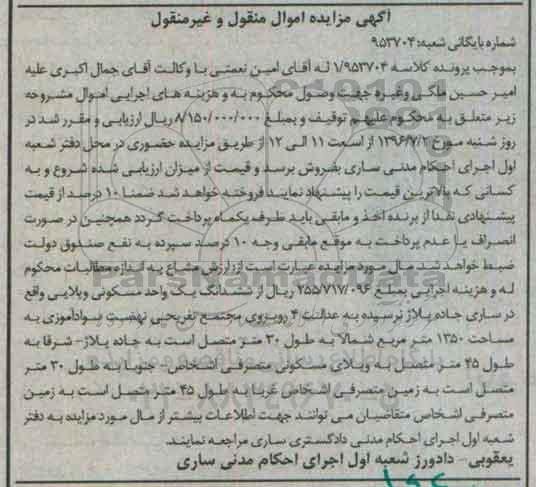 آگهی مزایده اموال منقول و غیرمنقول
شماره بایگانی شعبه: ۹۵۳۷۰۴
بموجب پرونده کلاسه ۱/۹۵۳۷۰۴ له آقای امین نعمتی با وکالت آقای جمال اکبری علیه
امیر حسین ملگی وغیره جهت وصول محکوم به و هزینه های اجرایی اموال مشروحه
زیر متعلق به محکوم علیهم توقیف و بمبلغ ۸/۱۵۰/۰۰۰/۰۰۰ ریال ارزیابی و مقرر شد در
روز شنبه مورخ ۱۳۹۶/۷/۲ از ساعت ۱۱ الی ۱۲ از طریق مزایده حضوری در محل دفتر شعبه
اول اجرای احکام مدنی ساری بفروش برسد و قیمت از میزان ارزیابی شده شروع و به
کسانی که بالاترین قیمت را پیشنهاد نمایند فروخته خواهد شد ضمنا ۱۰ درصد از قیمت
پیشنهادی نقدا از برنده اخذ و مابقی باید ظرف یکماه پرداخت گردد همچنین در صورت
انصراف یا عدم پرداخت به موقع مابقی وجه ۱۰ درصد سپرده به نفع صندوق دولت
ضبط خواهد شد. مال مورد مزایده عبارت است از: ارزش مشاع به اندازه مطالبات محکوم
له و هزینه اجرایی بمبلغ ۲۵۵/۷۱۷/۰۹۶ ریال از ششدانگ یک واحد مسکونی ویلایی واقع
در ساری جاده پلاژ نرسیده به عدالت ۴ روبروی مجتمع تفریحی نهضت سوادآموزی به
مساحت ۱۳۵۰ متر مربع شمالا به طول ۳۰ متر متصل است به جاده پلاژ- شرقا به
طول ۴۵ متر متصل به ویلای مسکونی متصرفی اشخاص- جنوبا به طول ۳۰ متر
متصل است به زمین متصرفی اشخاص غربا به طول ۴۵ متر متصل است به زمین
متصرفی اشخاص متقاضیان می توانند جهت اطلاعات بیشتر از مال مورد مزایده به دفتر
شعبه اول اجرای احکام مدنی دادگستری ساری مراجعه نمایند.
یعقوبی- دادورز شعبه اول اجرای احکام مدنی ساری